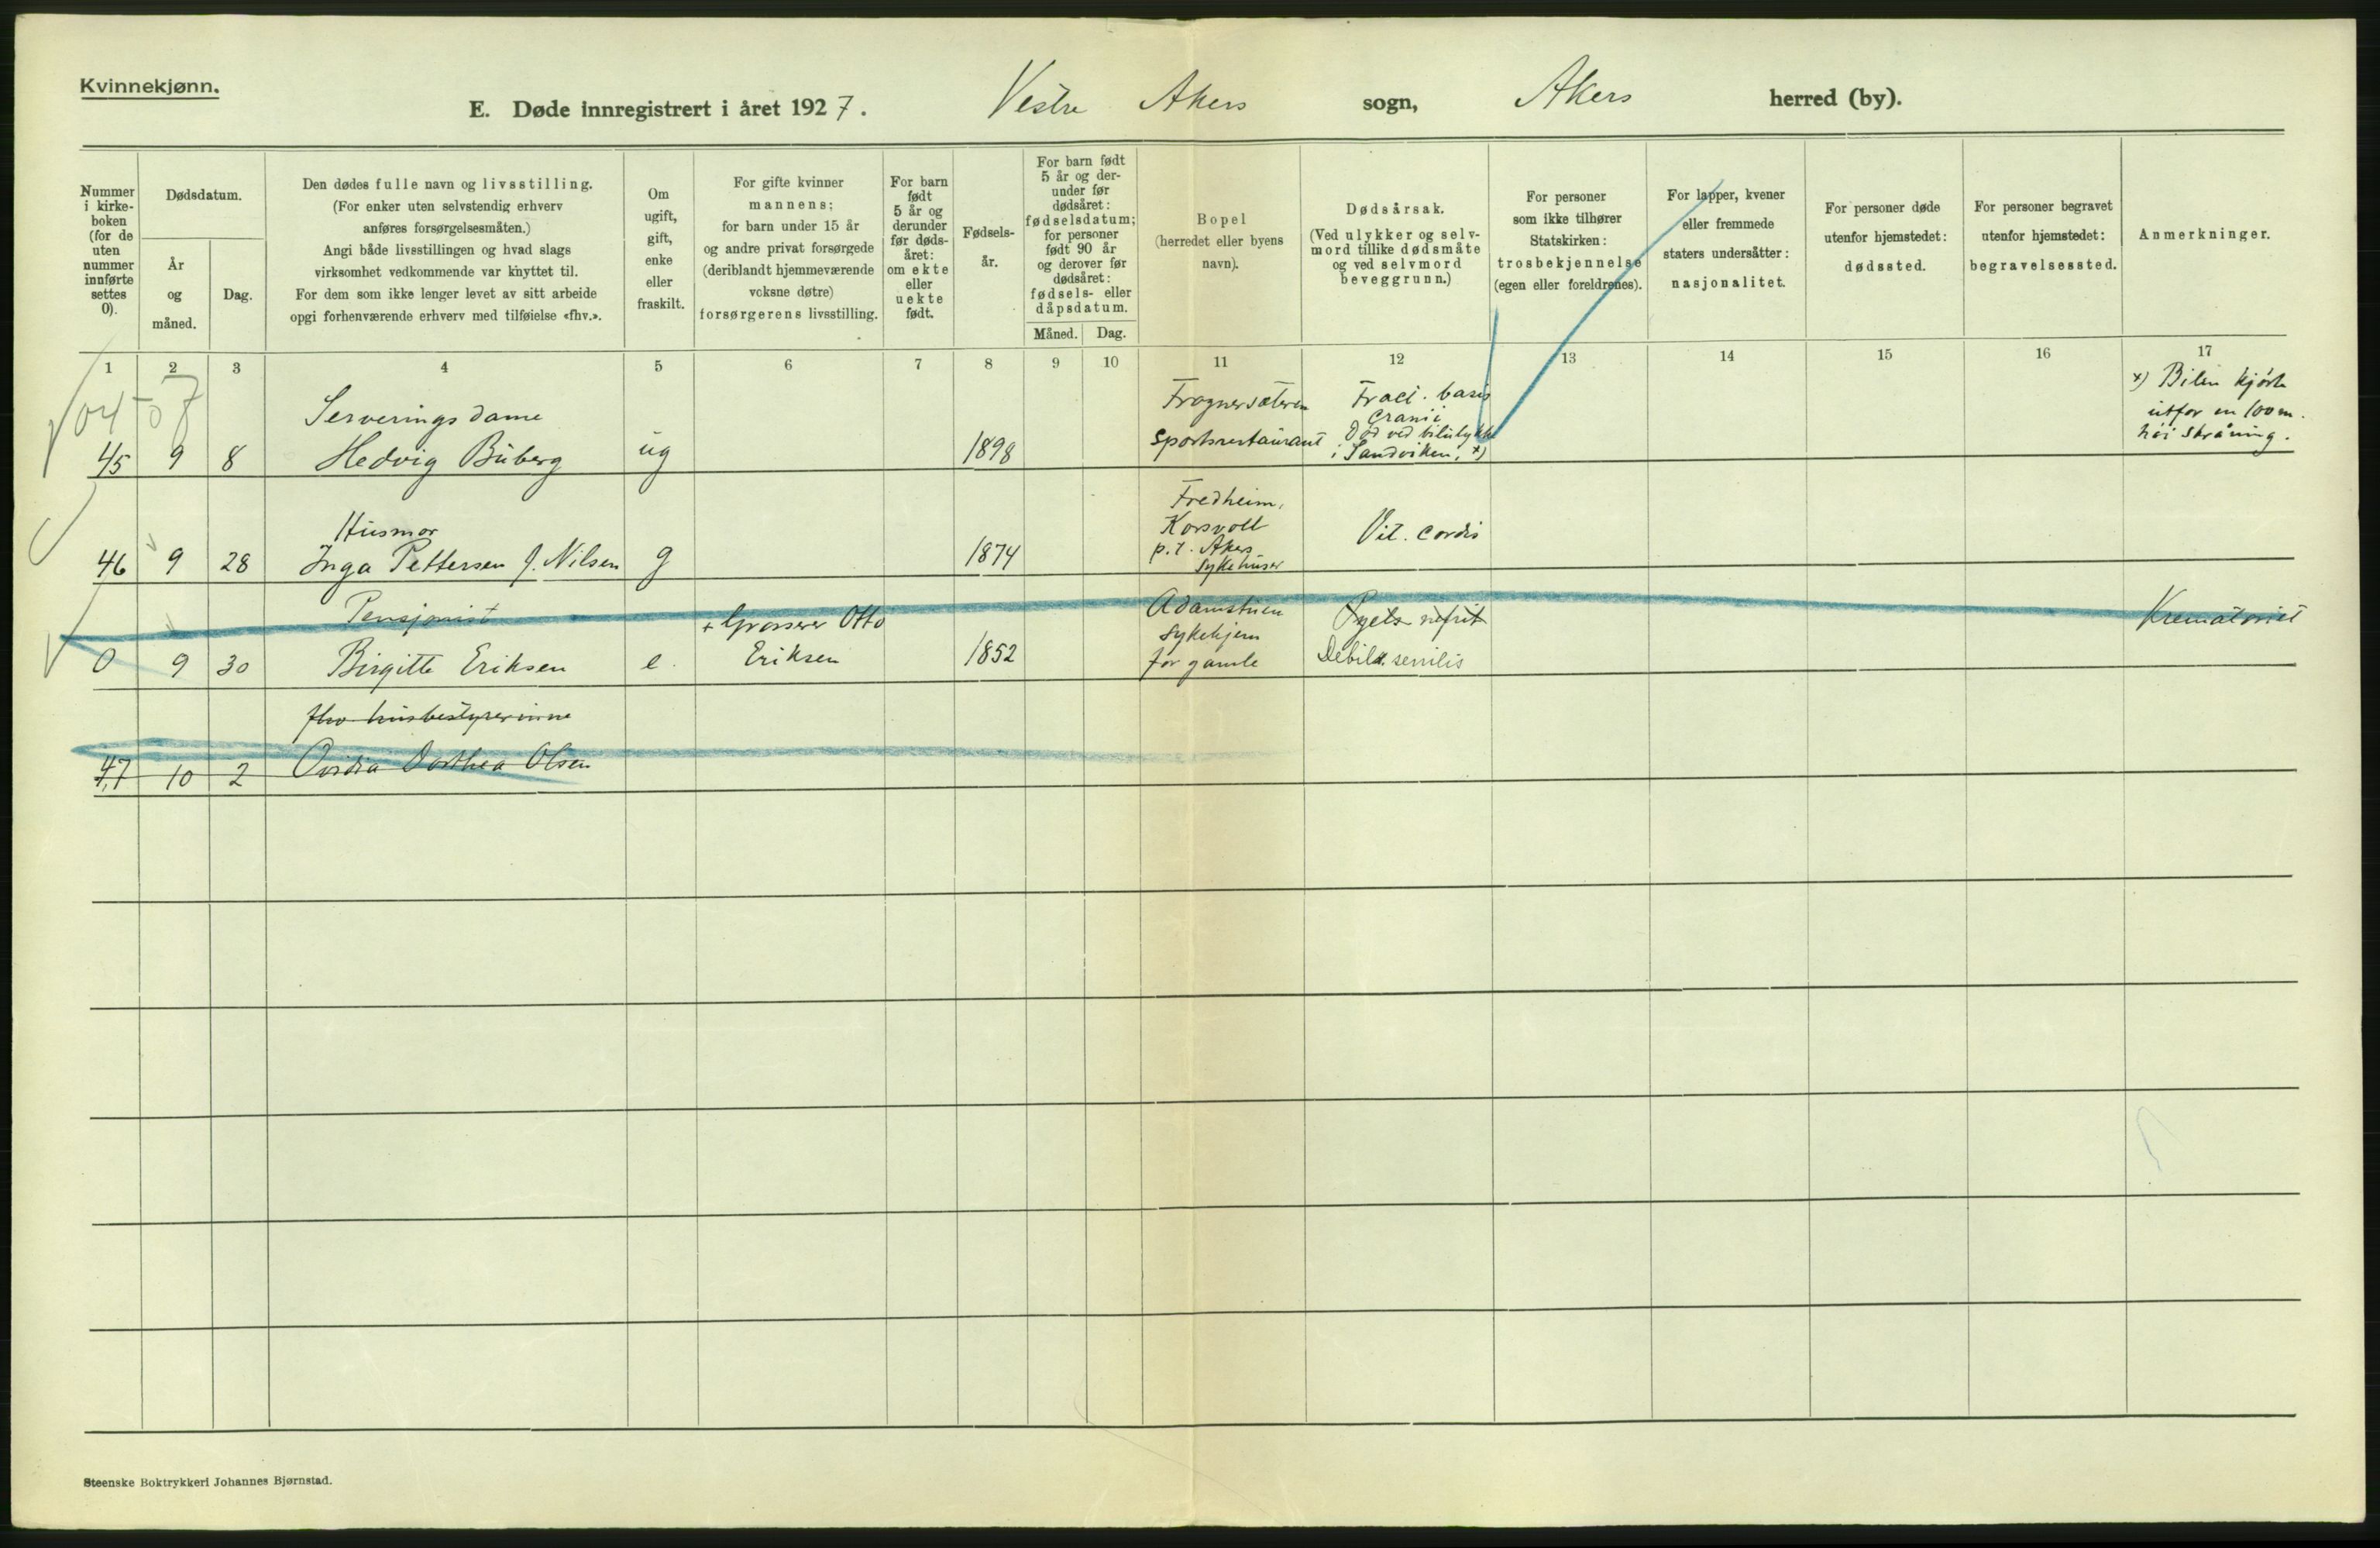 Kvinnekjønn.
E. Døde innregistrert i året 1927. Vestre Akers sogn, Akers herred (by).
Nummer i kirke-boken (for de uten nummer innførte settes 0).
Dødsdatum.
År og måned.
Dag.
Den dødes fulle navn og livsstilling.
(For enker uten selvstendig erhverv
anføres forsørgelsesmåten.)
Angi både livsstillingen og hvad slags
virksomhet vedkommende var knyttet til.
For dem som ikke lenger levet av sitt arbeide
opgi forhenværende erhverv med tilføielse «fhv.».
Om ugift, gift, enke eller fraskilt.
For gifte kvinner
mannens;
for barn under 15 år
og andre privat forsørgede
(deriblandt hjemmeværende
voksne døtre)
forsørgerens livsstilling.
For barn født 5 år og derunder før døds-året: om ekte eller uekte født.
Fødsels-år.
For barn født
5 år og der-
under før
dødsåret:
fødselsdatum;
for personer
født 90 år
og derover før
dødsåret:
fødsels- eller
dåpsdatum.
Måned. Dag.
Bopel
(herredet eller byens
navn).
Dødsårsak.
(Ved ulykker og selv-
mord tillike dødsmåte
og ved selvmord
beveggrunn.)
For personer
som ikke tilhører
Statskirken:
trosbekjennelse
(egen eller foreldrenes).
For lapper, kvener
eller fremmede
staters undersåtter:
nasjonalitet.
For personer døde
utenfor hjemstedet:
dødssted.
For personer begravet
utenfor hjemstedet:
begravelsessted.
Anmerkninger.
1 2 3 4 5 6 7 8 9 10 11 12 13 14 15 16 17
04-07
45 9 8
Serveringsdame
Hedvig Buberg
ug
1898
Frognersæteren
Sportsrestaurant
Fract. basis
Cranii
Død ved bilulykke
i Sandviken. x)
x) Bilen kjørte
utfor en 100 m.
høi skråning.
46 9 28
Husmor
Inga Pettersen f. Nilsen
g
1874
Fredheim,
Korsvoll
p.t. Akers
Sykehuset
Vit. cordis
0 9 30
Pensjonist
Birgitte Eriksen
e.
+ Grosserer Otto
Eriksen
1852
Adamstuen
Sykehjem
for gamle
Pyelo nefrit
Debilit. senilis
Krematoriet
47 10 2
fhv husbestyrerinne
Ovidia Dorthea Olsen
Steenske Boktrykkeri Johannes Bjørnstad.